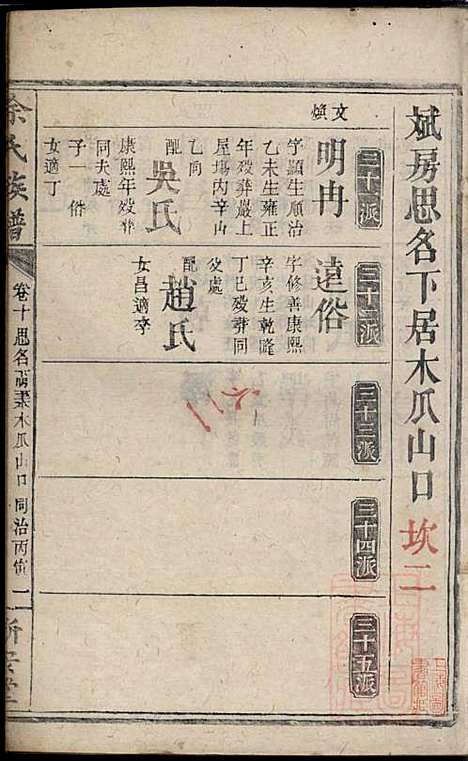 斌房思名下居木爪山口 坎二
三十一派
文煥
明冉
字顯生順治
乙未生雍正
年歿葬嚴上
屋塲内辛山
乙向
配吳氏
康熙年歿葬
同夫處
子一俗
女適丁
三十二派
遠俗
字修善康熙
辛亥生乾隆
丁巳歿葬同
父處
配趙氏
女昌適李
三十三派
三十四派
三十五派
余氏族譜
卷十思名
木爪山口
同治丙寅
二
新安堂